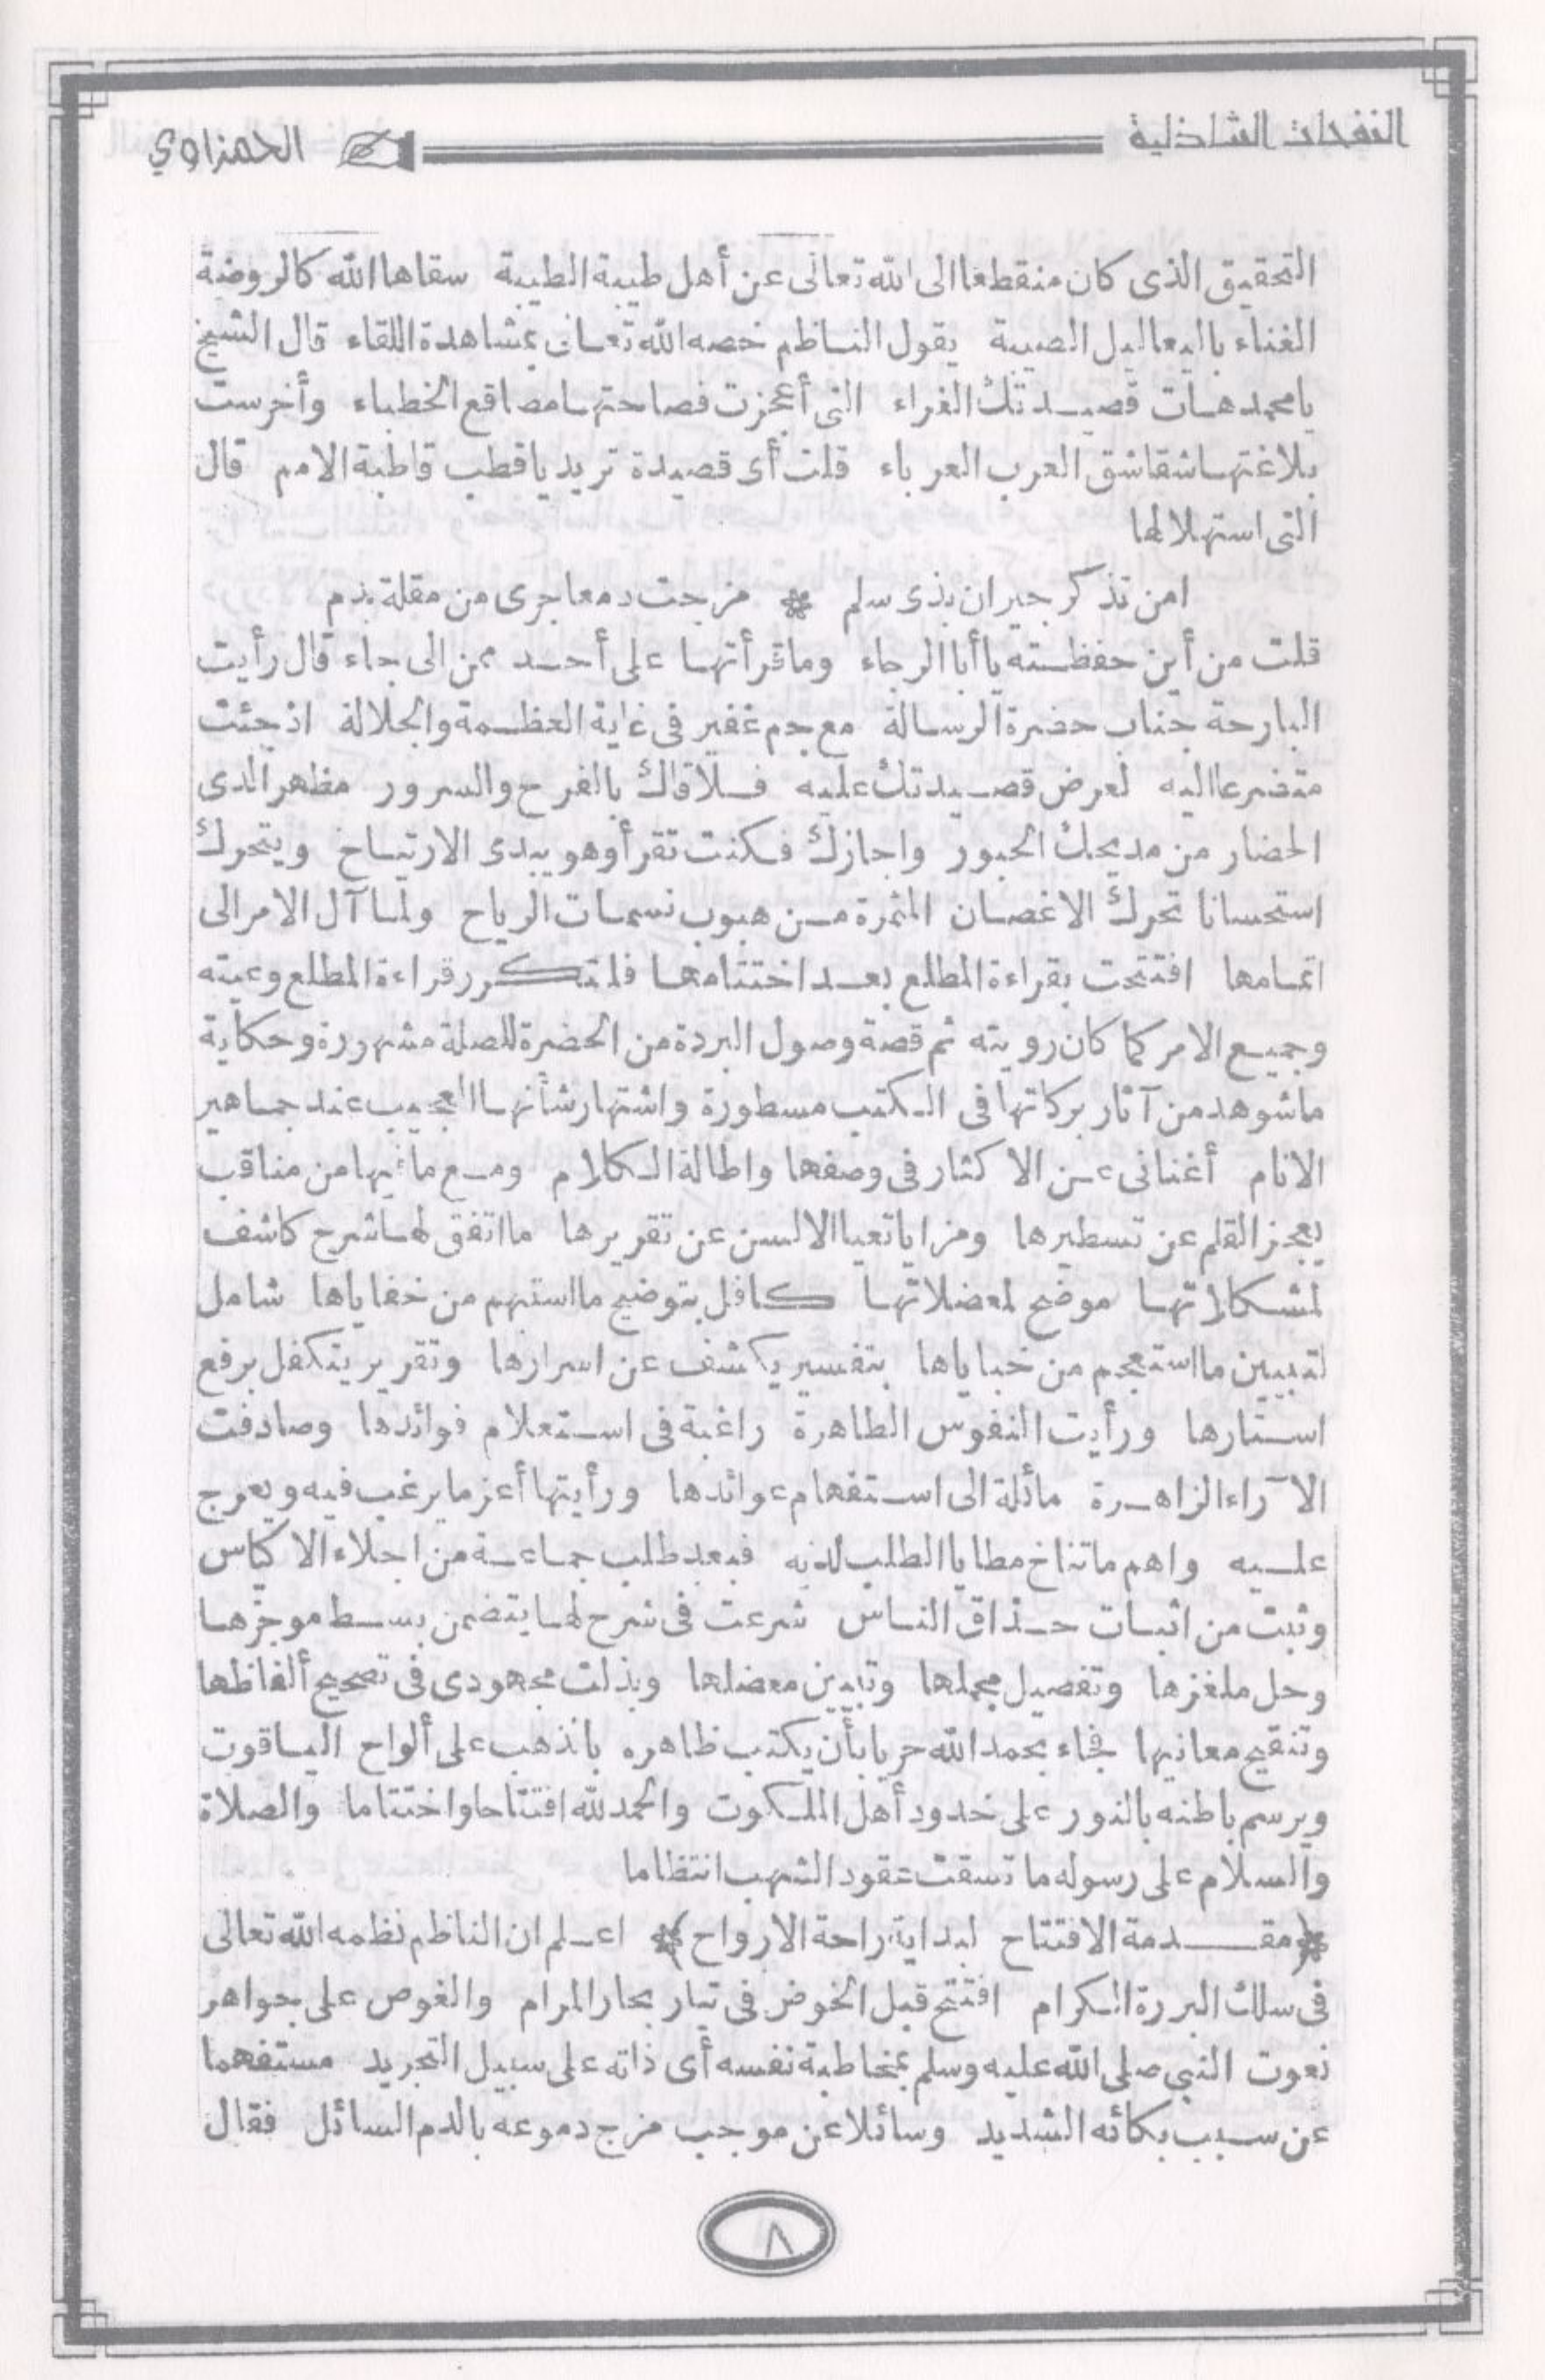 النفحات الشاذلية
الحمزاوي
التحقيق الذى كان منقطعا الى الله تعالى عن أهل طيبة الطيبة سقاها الله كالروضة
الغناء باليعاليل الصيبة يقول الناظم خصه الله تعالى بمشاهدة اللقاء قال الشيخ
يا محمد هات قصيدتك الغراء التى أعجزت فصاحتها مصاقع الخطباء وأخرست
بلاغتها شقاشق العرب العرباء قلت أى قصيدة تريد يا قطب قاطبة الامم قال
التى استهلالها
امن تذكر جيران بذى سلم * مزجت دمعا جرى من مقلة بدم
قلت من أين حفظته يا أبا الرجاء وما قرأتها على أحد ممن الى جاء قال رأيت
البارحة جناب حضرة الرسالة مع جم غفير فى غاية العظمة والجلالة اذ جئت
متضرعا اليه لعرض قصيدتك عليه فلاقاك بالفرح والسرور مظهر الذى
الحضار من مديحك الحبور واجازك فكنت تقرأ وهو يبدى الارتياح ويتحرك
استحسانا تحرك الاغصان المثمرة من هبوب نسمات الرياح ولما آل الامر الى
اتمامها افتتحت بقراءة المطلع بعد اختتامها فلما تكرر قراءة المطلع وعيته
وجميع الامر كما كان رويته ثم قصة وصول البردة من الحضرة للصلة مشهورة وحكاية
ما شوهد من آثار بركاتها فى الكتب مسطورة واشتهار شأنها العجيب عند جماهير
الانام أغنانى عن الاكثار فى وصفها واطالة الكلام ومع ما فيها من مناقب
يعجز القلم عن تسطيرها ومزايا تعيا الالسن عن تقريرها ما اتفق لها شرح كاشف
لمشكلاتها موضح لمعضلاتها كافل بتوضيح ما استبهم من خفاياها شامل
لتبيين ما استعجم من خباياها بتفسير يكشف عن اسرارها وتقرير يتكفل برفع
استارها ورأيت النفوس الطاهرة راغبة فى استعلام فوائدها وصادفت
الآراء الزاهرة مائلة الى استفهام عوائدها ورأيتها أعز ما يرغب فيه ويعرج
عليه واهم ما تناخ مطايا الطلب لديه فبعد طلب جماعة من اجلاء الاكياس
وثبت من اثبات حذاق الناس شرعت فى شرح لها يتضمن بسط موجزها
وحل ملغزها وتفصيل مجملها وتبيين معضلها وبذلت مجهودى فى تصحيح ألفاظها
وتنقيح معانيها فجاء بحمد الله حريا بأن يكتب ظاهره بالذهب على ألواح الياقوت
ويرسم باطنه بالنور على خدود أهل الملكوت والحمد لله افتتاحا واختتاما والصلاة
والسلام على رسوله ما تسقت عقود الشهب انتظاما
(مقدمة الافتتاح لبداية راحة الارواح) اعلم ان الناظم نظمه الله تعالى
فى سلك البررة الكرام افتتح قبل الخوض فى تيار بحار المرام والغوص على جواهر
نعوت النبى صلى الله عليه وسلم بمخاطبة نفسه أى ذاته على سبيل التجريد مستفهما
عن سبب بكائه الشديد وسائلا عن موجب مزج دموعه بالدم السائل فقال
٨